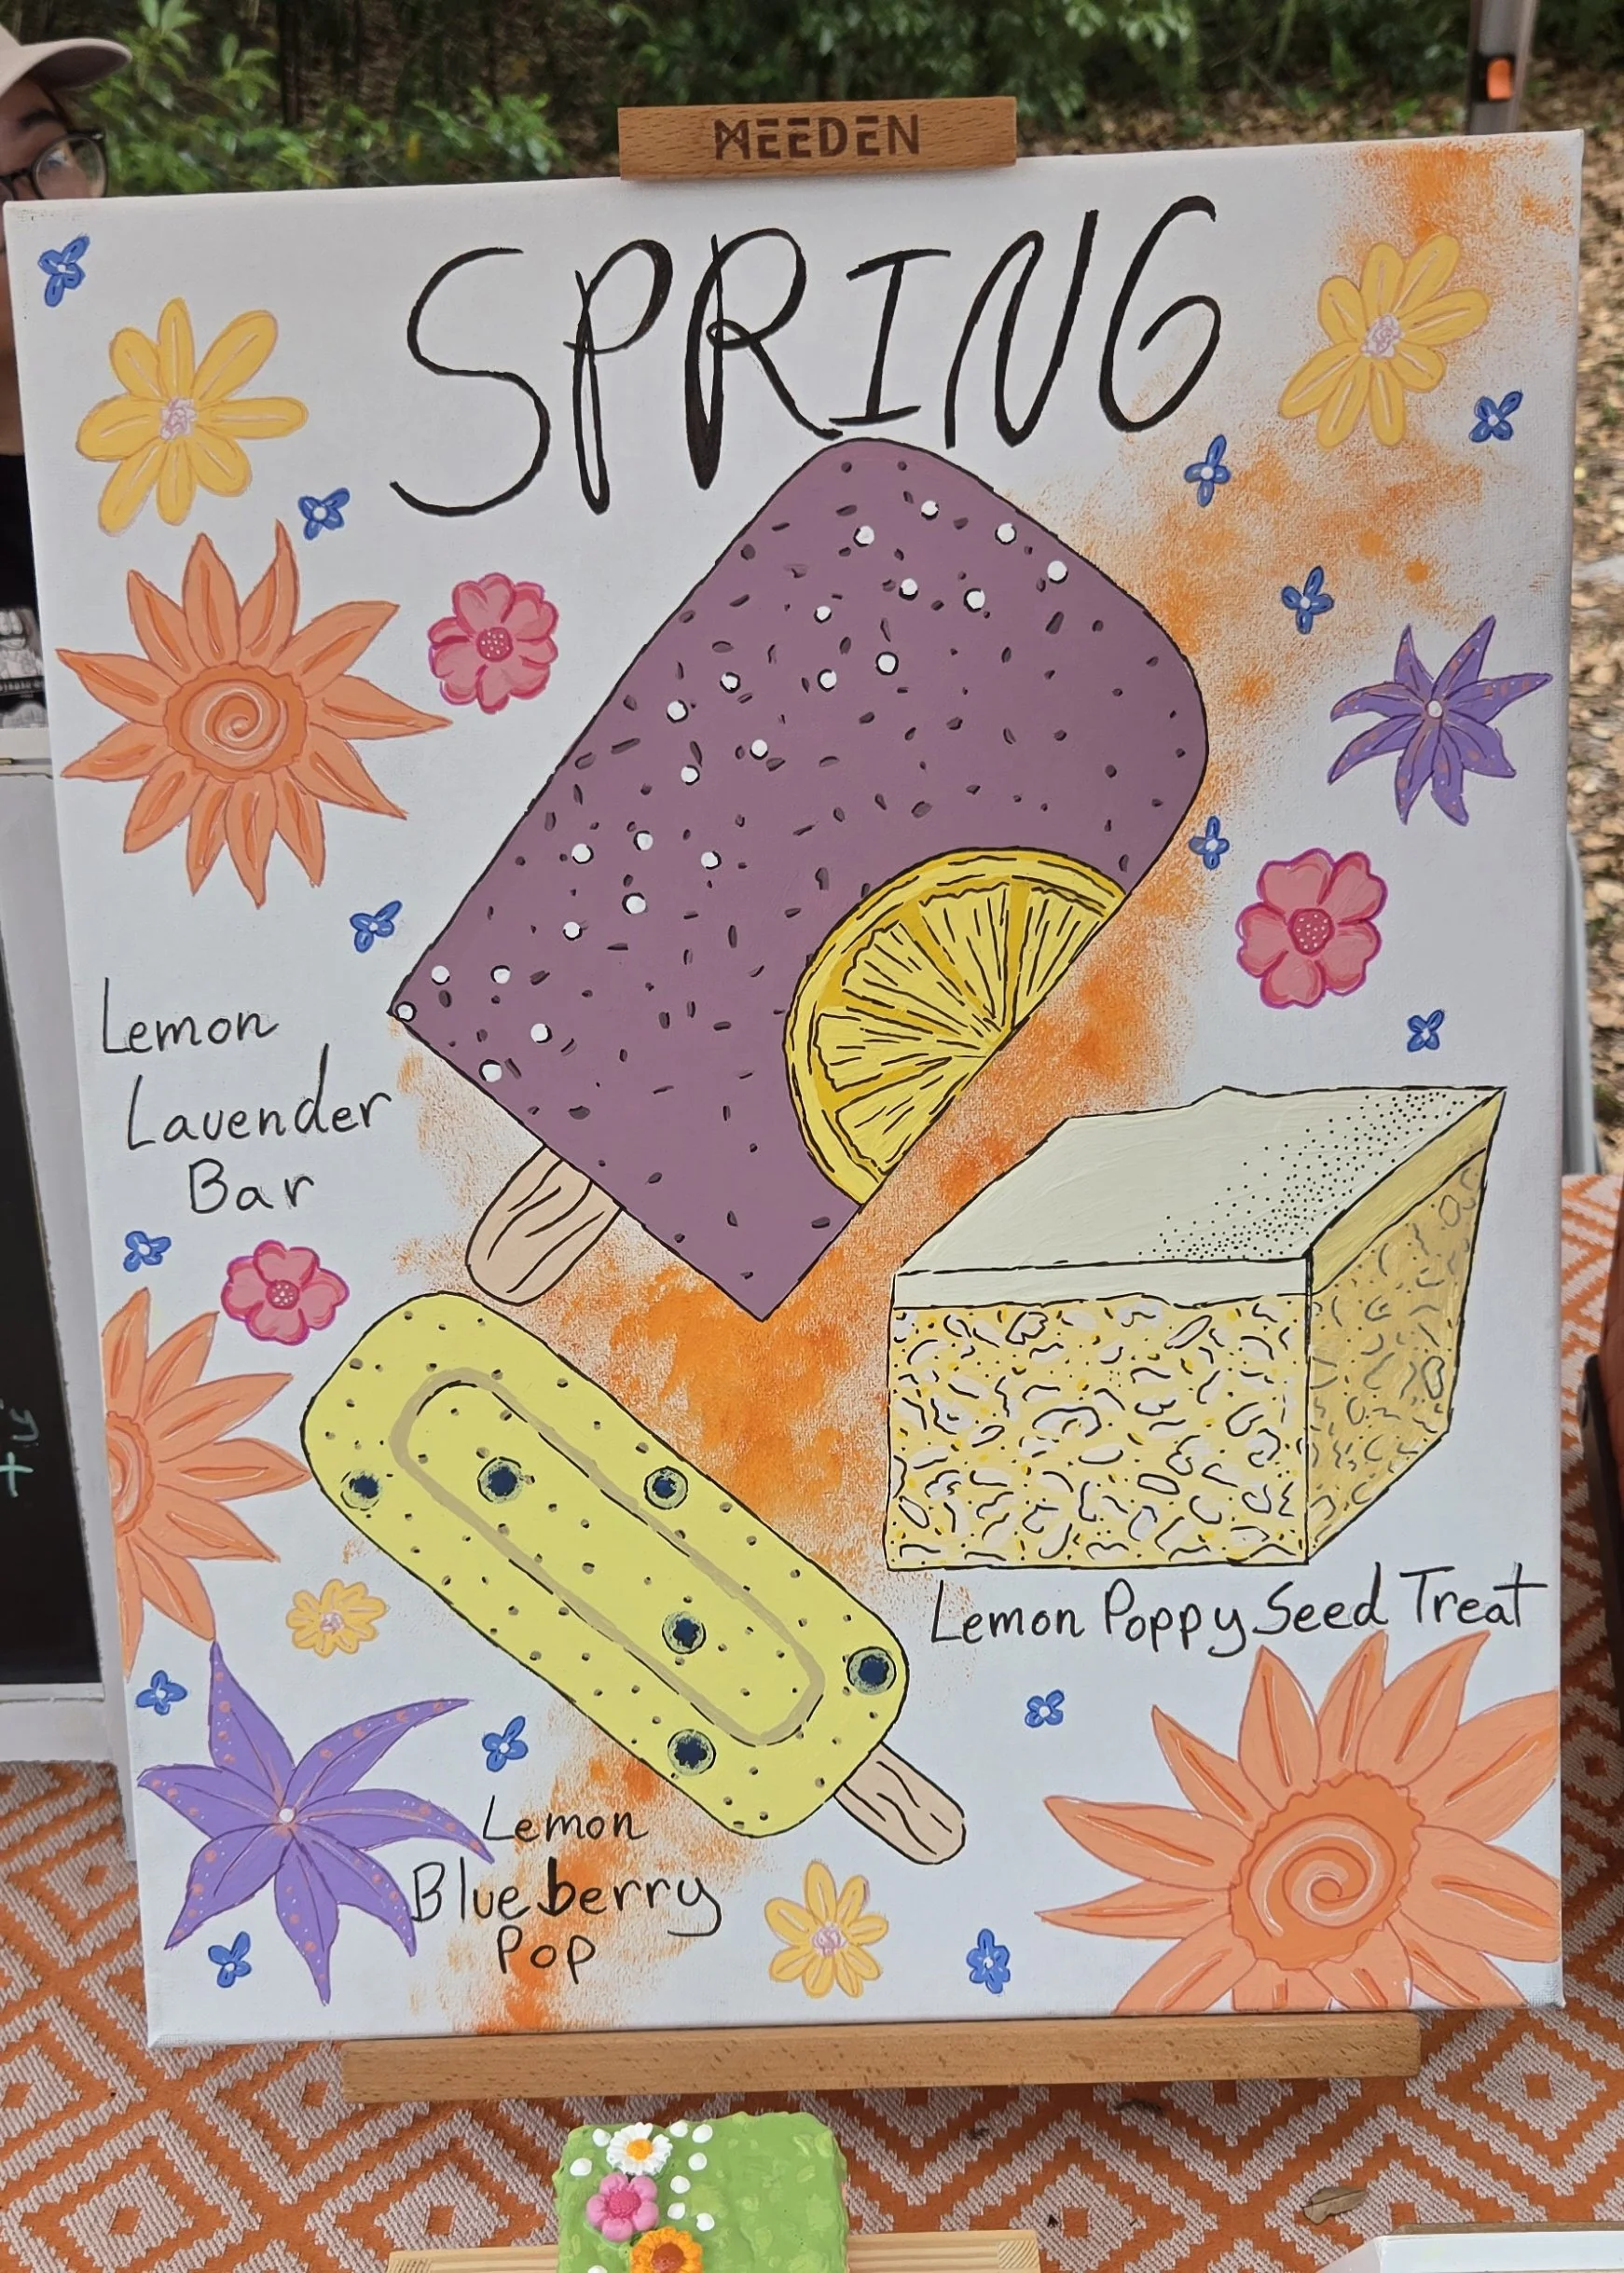 MEEDEN
SPRING
Lemon
Lavender
Bar
Lemon Poppy Seed Treat
Lemon
Blueberry
Pop